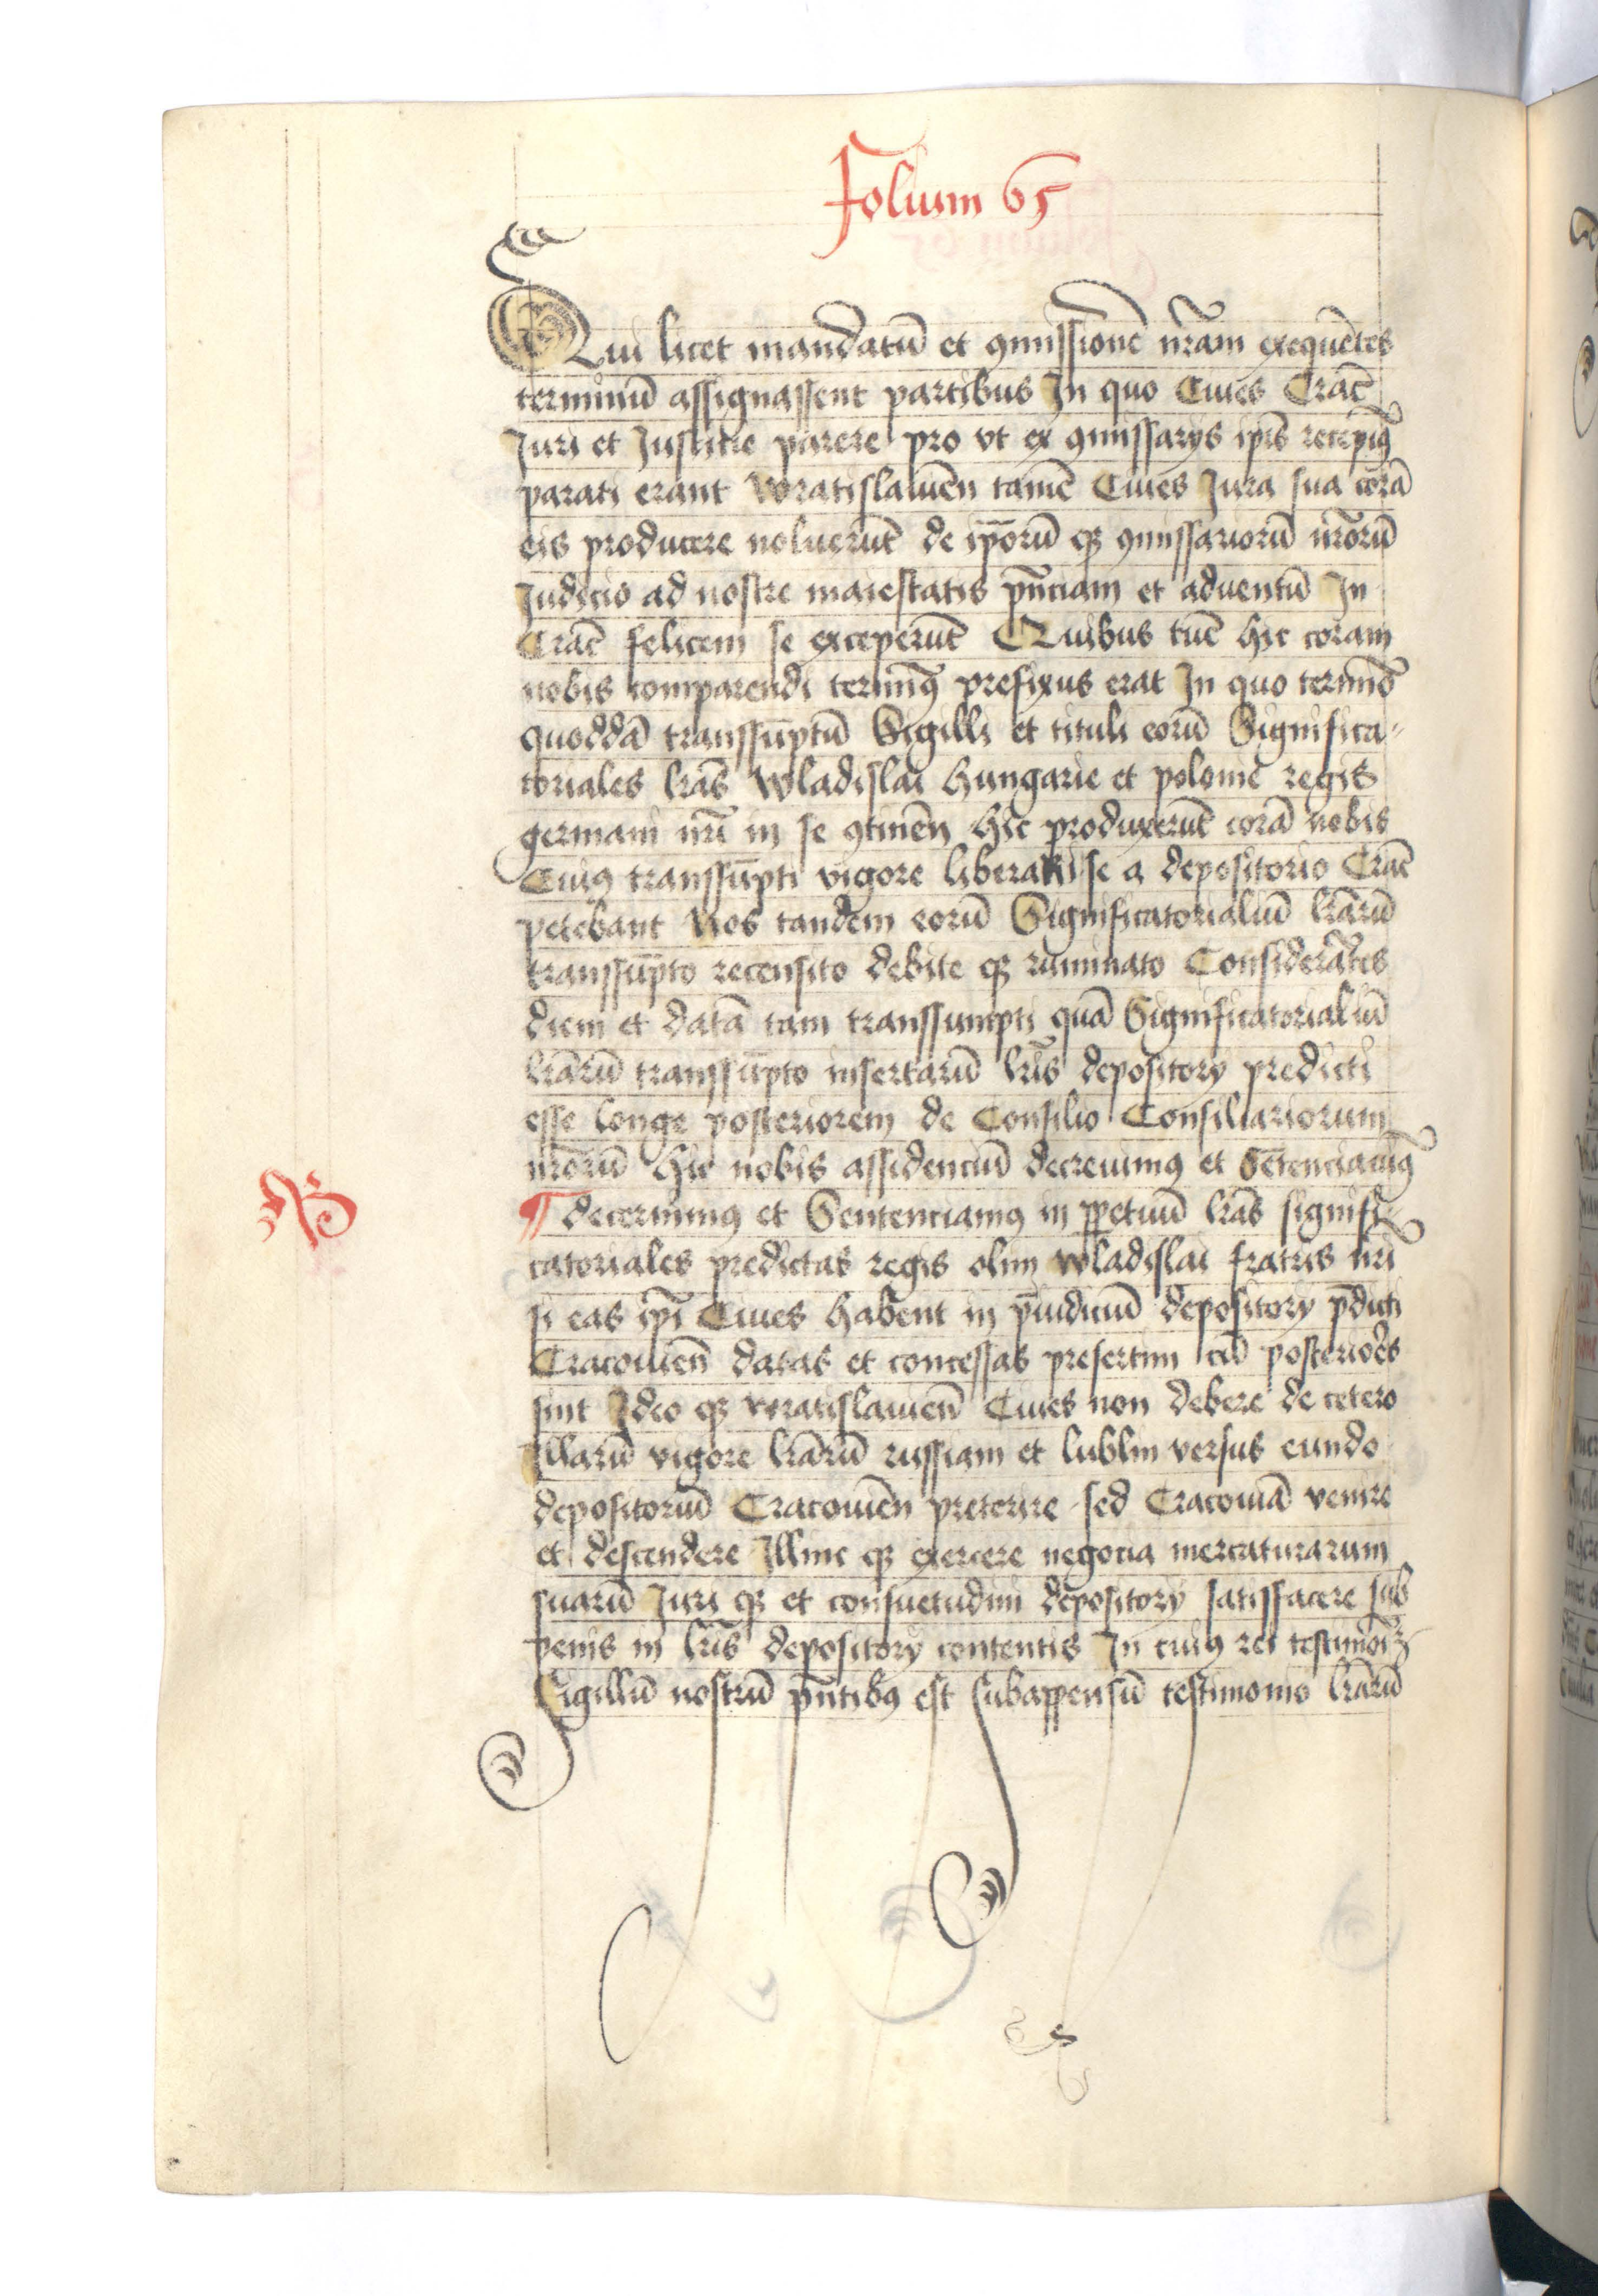 Folium 65
Qui licet mandatū et ꝯmissionē nr̄am exequētes
terminū assignassent partibus In quo Ciues Crac̄
Juri et Justicie parere pro vt ex ꝯmissarijs ip̄is recepimꝰ
parati erant Wratislauien̄ tamē Ciues Jura sua corā
eis producere noluerūt de ip̄orū qꝫ ꝯmissariorū nr̄orū
Judicio ad nostre maiestatis pn̄ciam et aduentū In
Crac̄ felicem se exceperūt Quibus tūc hic coram
nobis comparendi terminꝰ prefixus erat In quo termino
quoddā transsūptū Sigilli et tituli eorū Significa-
toriales lr̄as Wladislai Hungarie et polonie regis
germani nr̄i in se ꝯtinen̄ hic produxerūt corā nobis
Cuiꝰ transsūpti vigore liberari se a depositorio Crac̄
petebant Nos tandem eorū Significatorialiū lr̄arū
transsūpto recensito debite qꝫ ruminato Considerātes
diem et datā tam transsumpti quā Significatorialiū
lr̄arū transsūpto insertarū lr̄is depositorij predicti
esse longe posteriorem de Consilio Consiliariorum
nr̄orū hic nobis assidenciū decreuimꝰ et Sētenciauimꝰ
NB
¶ decernimꝰ et Sentenciamꝰ in ꝑpetuū lr̄as signifi-
catoriales predictas regis olim Wladislai fratris nr̄i
si eas ip̄i Ciues habent in p̄iudiciū depositorij p̄dicti
Cracouien̄ datas et concessas presertim cū posteriores
sint Ideo qꝫ wratislauien̄ Ciues non debere de cetero
Illarū vigore lr̄arū russiam et lublin versus eundo
depositoriū Cracouien̄ preterire sed Cracouiā venire
et descendere Illinc qꝫ exercere negocia mercaturarum
suarū Juri qꝫ et consuetudini depositorij satisfacere sub
penis in lr̄is depositorij contentis In cuiꝰ rei testimoniū
Sigillū nostrū pn̄tibꝰ est subappensū testimonio lr̄arū